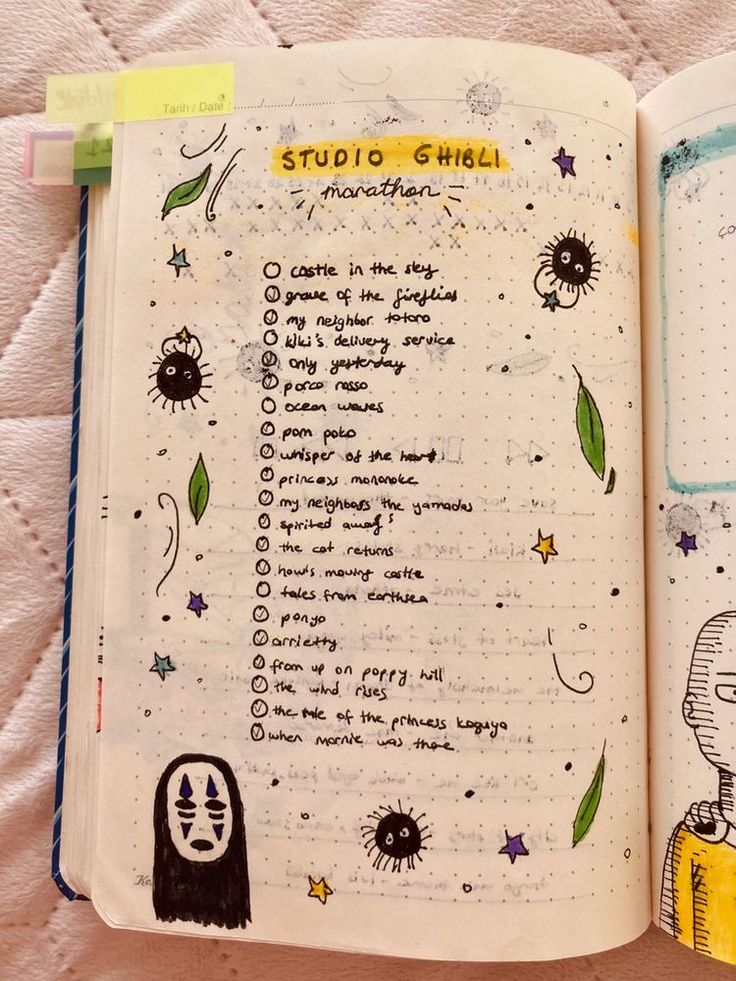 Tarih / Date :
STUDIO GHIBLI
marathon
castle in the sky
grave of the fireflies
my neighbor totoro
kiki's delivery service
only yesterday
porco rosso
ocean waves
pom poko
whisper of the heart
princess mononoke
my neighbors the yamadas
spirited away
the cat returns
howl's moving castle
tales from earthsea
ponyo
arrietty
from up on poppy hill
the wind rises
the tale of the princess kaguya
when marnie was there